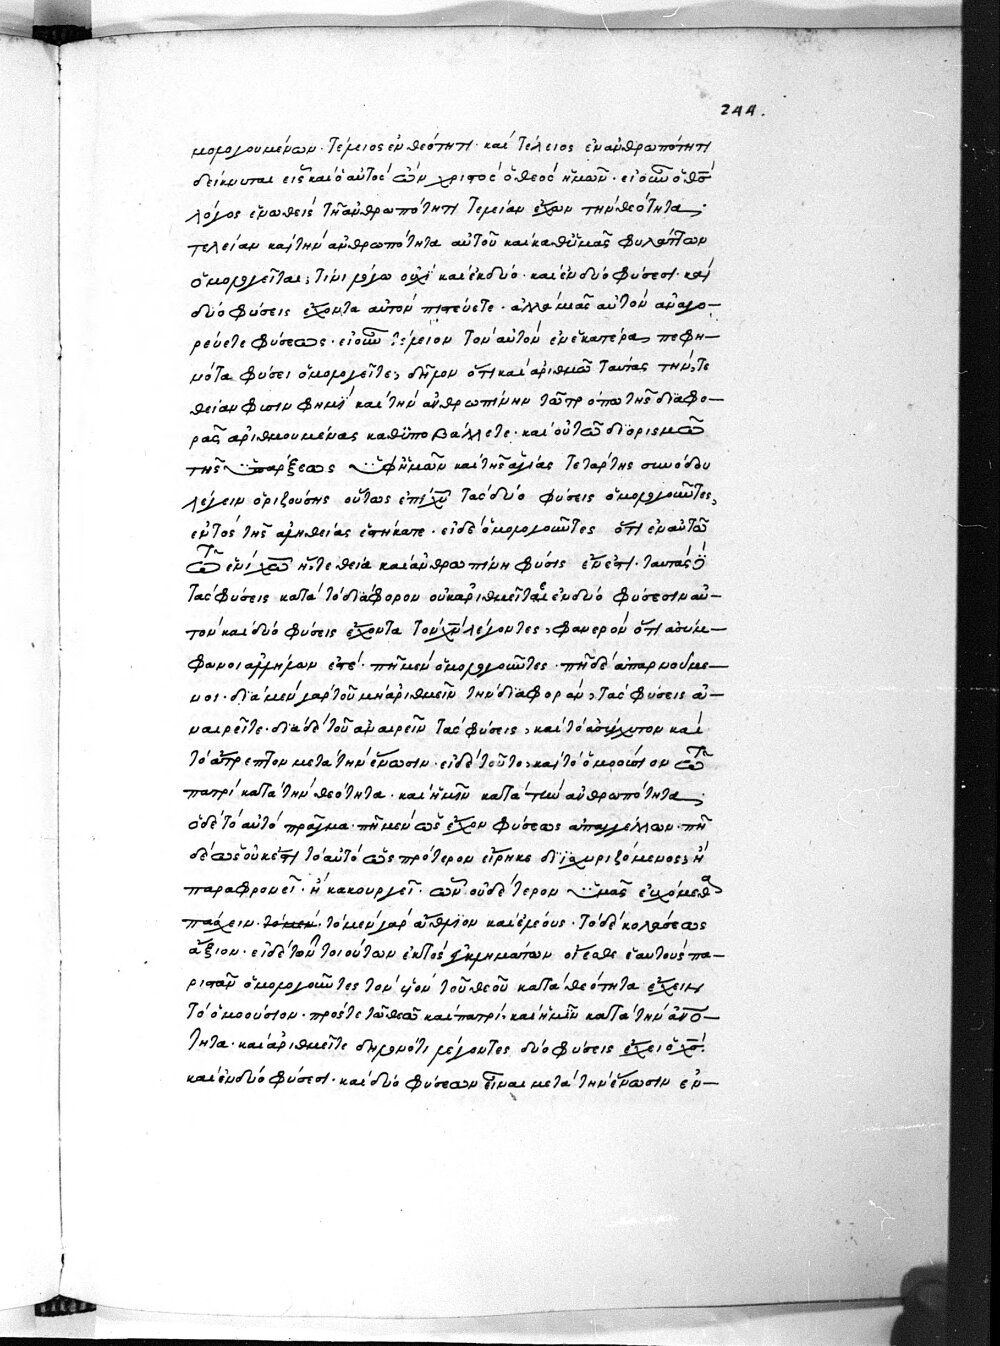 244.
μολογουμένων· τέλειος ἐν θεότητι· καὶ τέλειος ἐν ἀνθρωπότητι
δείκνυται εἷς καὶ ὁ αὐτὸς ὢν χριστὸς ὁ θεὸς ἡμῶν· εἰ οὖν ὁ θεὸς
λόγος ἑνωθεὶς τῇ ἀνθρωπότητι τελείαν ἔχων τὴν θεότητα,
τελείαν καὶ τὴν ἀνθρωπότητα αὐτοῦ καὶ καθ' ὑμᾶς φυλάττων
ὁμολογεῖται; τίνι λόγω οὐχὶ καὶ ἐκ δύο· καὶ ἐν δύο φύσεσι· καὶ
δύο φύσεις ἔχοντα αὐτὸν πιστεύετε· ἀλλὰ μιᾶς αὐτὸν ἀναγο-
ρεύετε φύσεως· εἰ οὖν τέλειον τὸν αὐτὸν ἐν ἑκατέρα πεφη-
νότα φύσει ὁμολογεῖτε, δῆλον ὅτι καὶ ἀριθμῶ ταύτας τήν, τε
θείαν φύσιν φημὶ καὶ τὴν ἀνθρωπίνην τῶ τρόπω τῆς διαφο-
ρᾶς ἀριθμουμένας καθυποβάλλετε· καὶ οὕτω διορισμῶ
τῆς ὑπάρξεως ὑφ' ἡμῶν καὶ τῆς ἁγίας τετάρτης συνόδου
λέγειν ὁριζούσης οὕτως ἐπὶ χῦ τὰς δύο φύσεις ὁμολογοῦντες,
ἐντὸς τῆς ἀληθείας ἑστήκατε· εἰ δὲ ὁμολογοῦντες ὅτι ἐν αὐτῶ
τῶ ἑνὶ χῶ ἥ, τε θεία καὶ ἀνθρωπίνη φύσις ἔνεστι· ταύτας
τὰς φύσεις κατὰ τὸ διάφορον οὐκ ἀριθμεῖτε ἐν δύο φύσεσιν αὐ-
τὸν καὶ δύο φύσεις ἔχοντα τὸν χν λέγοντες, φανερὸν ὅτι ἀσύμ-
φωνοι ἀλλήλων ἐστέ· πῇ μὲν ὁμολογοῦντες· πῇ δὲ ἀπαρνούμε-
νοι· διὰ μὲν γὰρ τοῦ μὴ ἀριθμεῖν τὴν διαφοράν, τὰς φύσεις ἀ-
ναιρεῖτε· διὰ δὲ τοῦ ἀναιρεῖν τὰς φύσεις, καὶ τὸ ἀσύγχυτον καὶ
τὸ ἄτρεπτον μετὰ τὴν ἕνωσιν· εἰ δὲ τοῦτο, καὶ τὸ ὁμοούσιον τῶ
πατρὶ κατὰ τὴν θεότητα· καὶ ἡμῖν κατὰ τὴν ἀνθρωπότητα,
ὁ δὲ τὸ αὐτὸ πρᾶγμα· πῇ μὲν ὡς ἔχον φύσεως ἀπαγγέλλων· πῇ
δὲ ὡς οὐκέτι τὸ αὐτὸ ὡς πρότερον εἴρηκε διϊσχυριζόμενος, ἢ
παραφρονεῖ· ἢ κακουργεῖ· ὧν οὐδέτερον ὑμᾶς εὐχόμεθα
πάσχειν· τὸ μὲν τὸ μὲν γὰρ ἄθλιον καὶ ἐλέους· τὸ δὲ κολάσεως
ἄξιον· εἰ δὲ τῶν τοιούτων ἐκτὸς ἐγκλημάτων οἴεσθε ἑαυτοὺς πα-
ριστᾶν ὁμολογοῦντες τὸν υἱὸν τοῦ θεοῦ κατὰ θεότητα ἔχειν
τὸ ὁμοούσιον· πρός τε τῶ θεῶ καὶ πατρί· καὶ ἡμῖν κατὰ τὴν ἀνθρωπό-
τητα· καὶ ἀριθμεῖτε δηλονότι λέγοντες δύο φύσεις ἔχει ὁ χς·
καὶ ἐν δύο φύσεσι· καὶ δύο φύσεων εἶναι μετὰ τὴν ἕνωσιν ἐν-